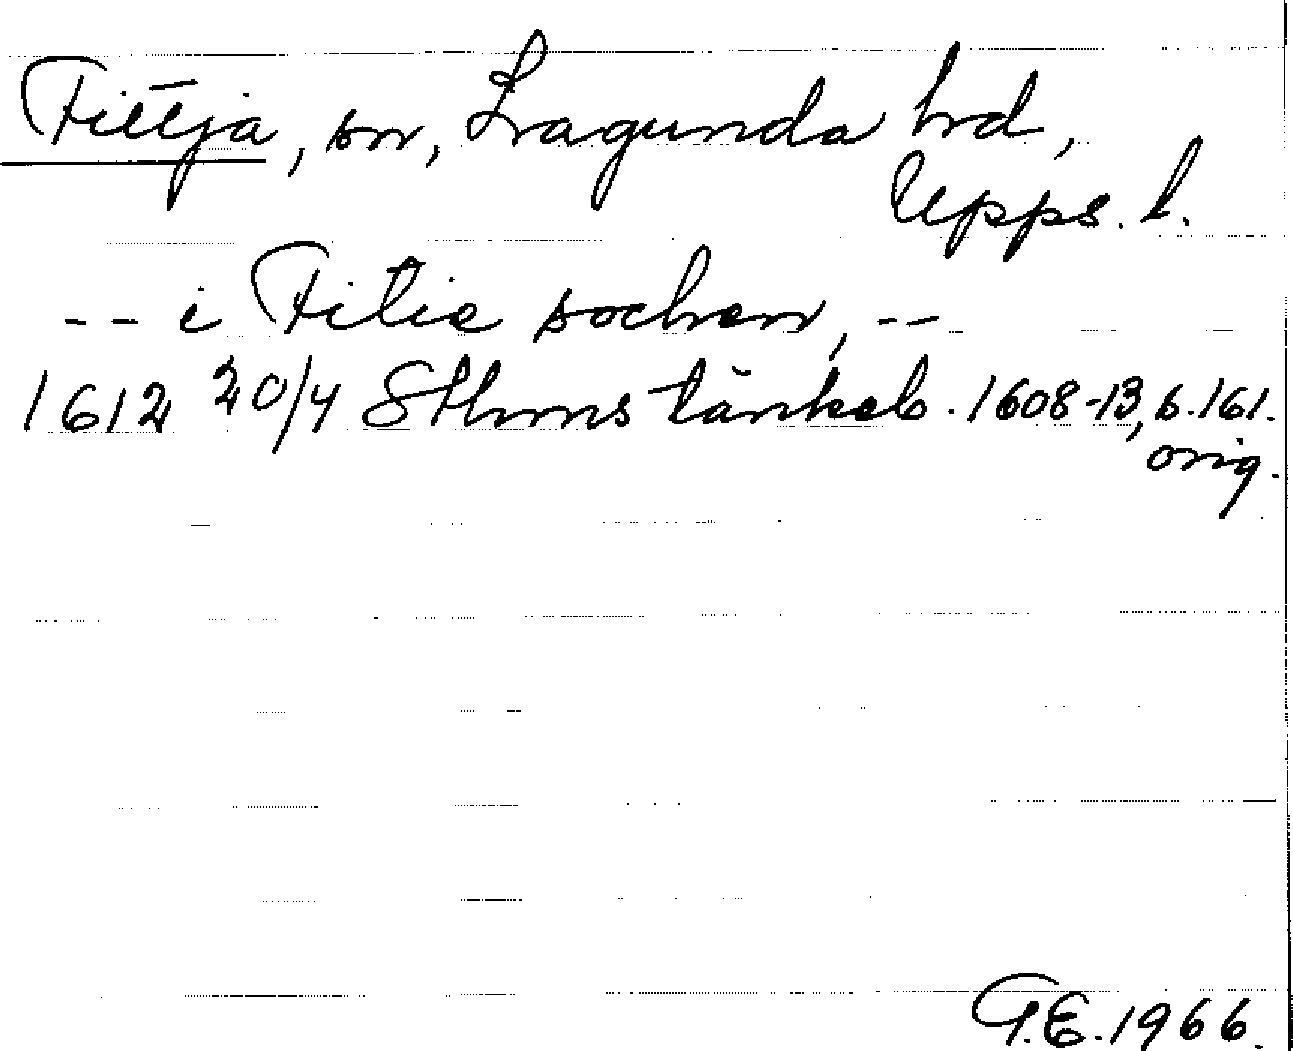 Fittja, sn, Lagunda hd,
Upps. l.
-- i Fitie sochen, --
1612 20/4 Sthms tänkeb. 1608-13, s. 161.
orig.
G.E. 1966.